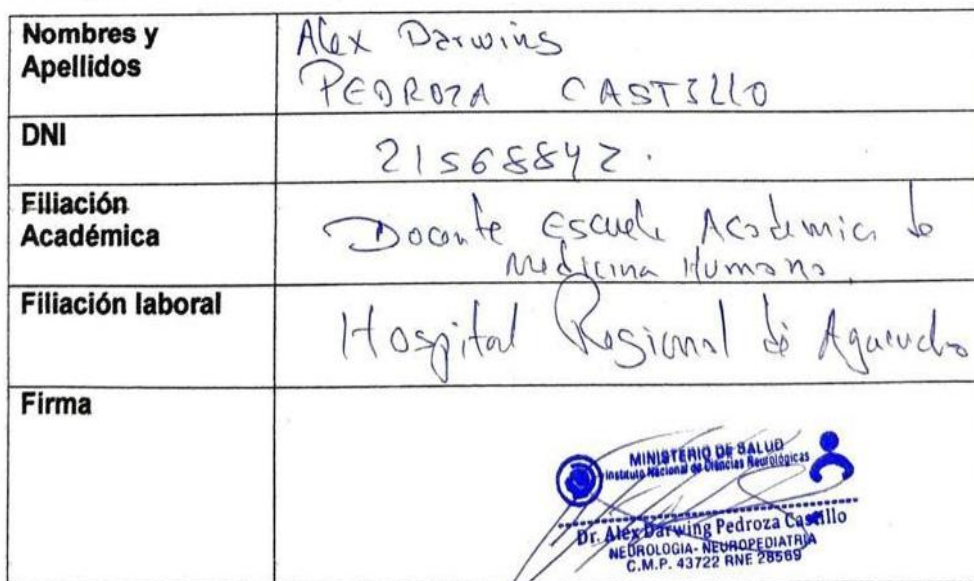 Nombres y
Apellidos
Alex Darwing
PEDROZA CASTILLO
DNI
21568842.
Filiación
Académica
Docente Escuela Academica de
Medicina Humana
Filiación laboral
Hospital Regional de Ayacucho
Firma
MINISTERIO DE SALUD
Instituto Nacional de Ciencias Neurológicas
Dr. Alex Darwing Pedroza Castillo
NEUROLOGIA- NEUROPEDIATRIA
C.M.P. 43722 RNE 28569